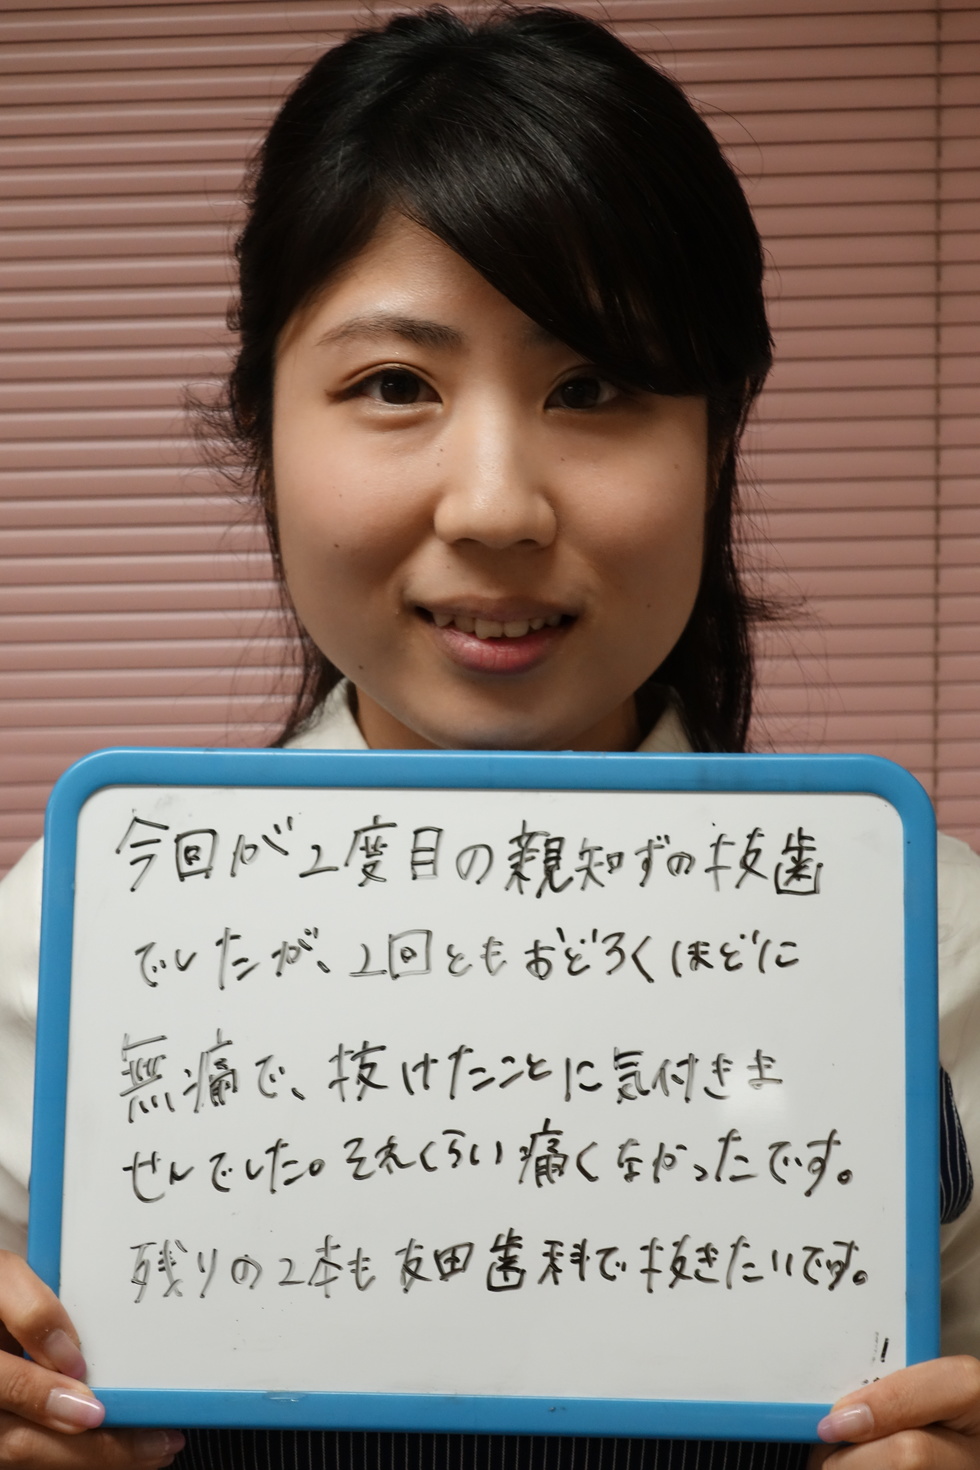 今回が2度目の親知ずの抜歯
でしたが、2回ともおどろくほどに
無痛で、抜けたことに気付きま
せんでした。それくらい痛くなかったです。
残りの2本も友田歯科で抜きたいです。